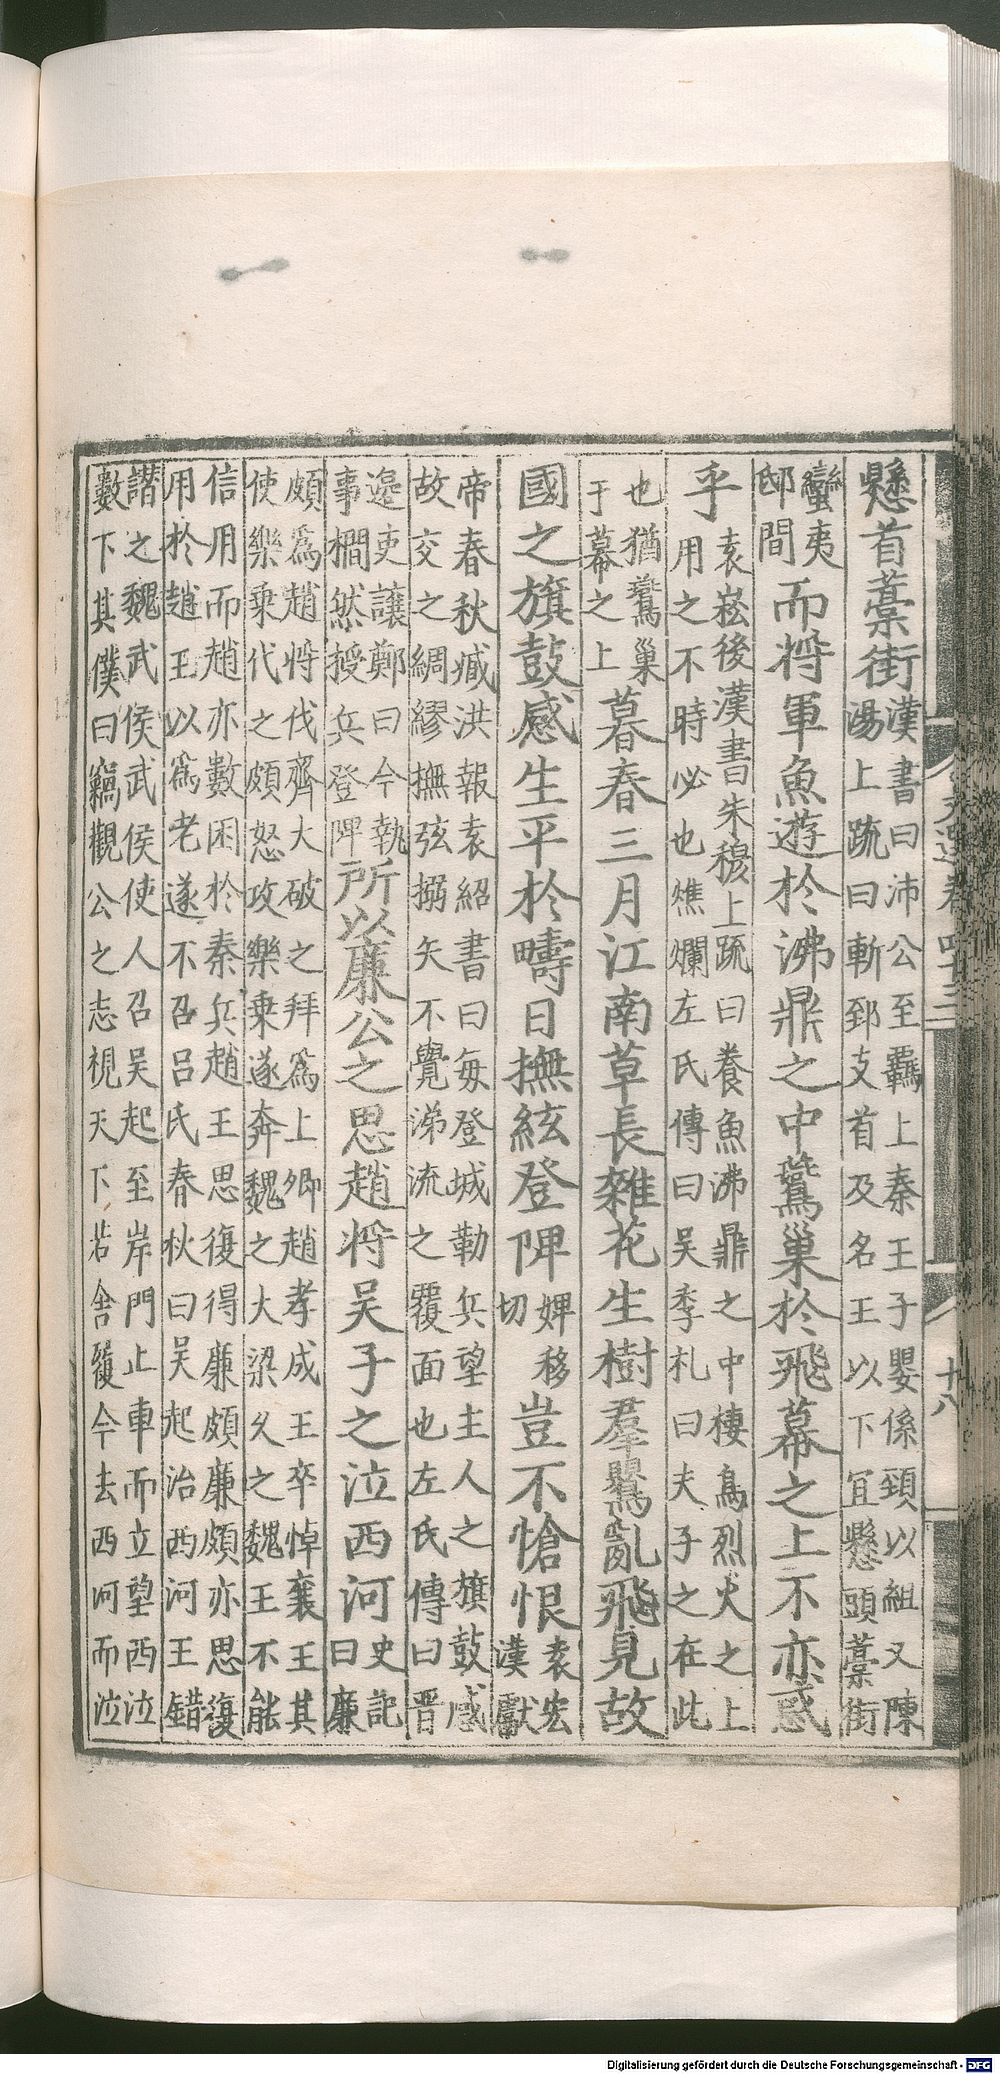 懸首藁街漢書曰沛公至覇上秦王子嬰係頸以組又陳湯上疏曰斬郅支首及名王以下冝懸頭藁街
蠻夷邸間而将軍魚遊於沸鼎之中鷰巢於飛幕之上不亦惑
乎袁崧後漢書朱穆上疏曰養魚沸鼎之中棲鳥烈火之上用之不時必也燋爛左氏傳曰吴季札曰夫子之在此
也猶鷰巢于幕之上暮春三月江南草長雜花生樹羣鸎亂飛見故
國之旗鼓感生平於疇日撫絃登陴婢移切豈不愴恨袁宏漢獻
帝春秋臧洪報袁紹書曰每登城勒兵望主人之旗鼓感故交之綢繆撫弦搦矢不覺涕流之覆面也左氏傳曰晋
邉吏讓鄭曰今執事撊然授兵登陴所以廉公之思趙将吴子之泣西河史記曰廉
頗爲趙将伐齊大破之拜爲上卿趙孝成王卒悼襄王其使樂乗代之頗怒攻樂乗遂奔魏之大梁乆之魏王不能
信用而趙亦數困於秦兵趙王思復得廉頗廉頗亦思復用於趙趙王以爲老遂不召吕氏春秋曰吴起治西河王錯
譛之魏武侯武侯使人召吴起至岸門止車而立望西泣數下其僕曰竊觀公之志視天下若舍屣今去西河而泣
文選卷四十三
十八
Digitalisierung gefördert durch die Deutsche Forschungsgemeinschaft - DFG